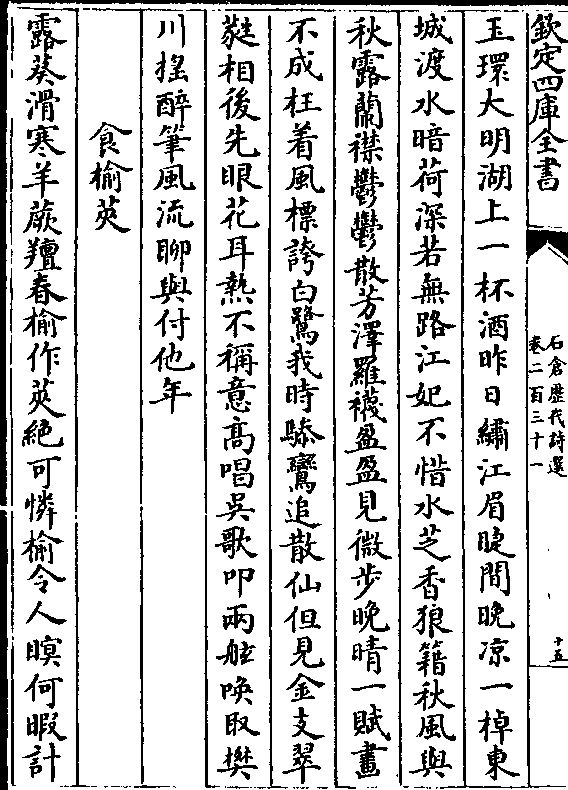 欽定四庫全書
石倉歴代詩選
卷二百三十一
十五
玉環大明湖上一杯酒昨日繡江眉睫間晚凉一棹東
城渡水暗荷深若無路江妃不惜水芝香狼籍秋風與
秋露蘭襟鬱鬱散芳澤羅襪盈盈見微步晚晴一賦畫
不成枉着風標誇白鷺我時驂鸞追散仙但見金支翠
蕤相後先眼花耳熱不稱意髙唱吳歌叩兩舷喚取樊
川摇醉筆風流聊與付他年
食榆莢
露葵滑寒羊蕨羶春榆作莢絶可憐榆令人瞑何暇計